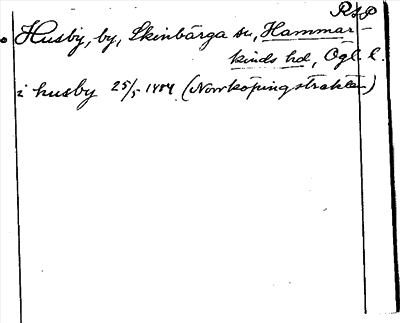 RAP
Husby, by, Skönbärga sn, Hammar-
kinds hd, Ögl. l.
i husby 25/5 1484 (Norrköpingstrakten)